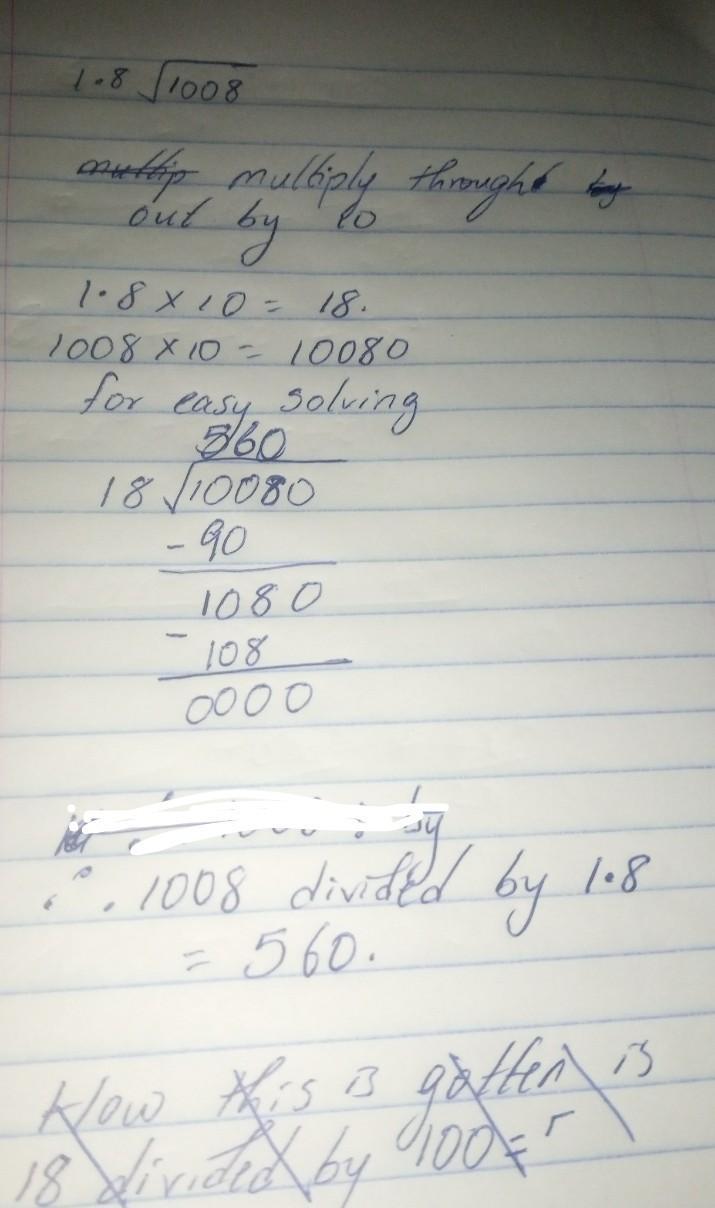 1.8 √1008
multip multiply through by
out by 10
1.8 × 10 = 18.
1008 × 10 = 10080
for easy solving
560
18 √10080
- 90
1080
- 108
0000
by
∴ 1008 divided by 1.8
= 560.
How this is gotten is
18 divided by 100 =